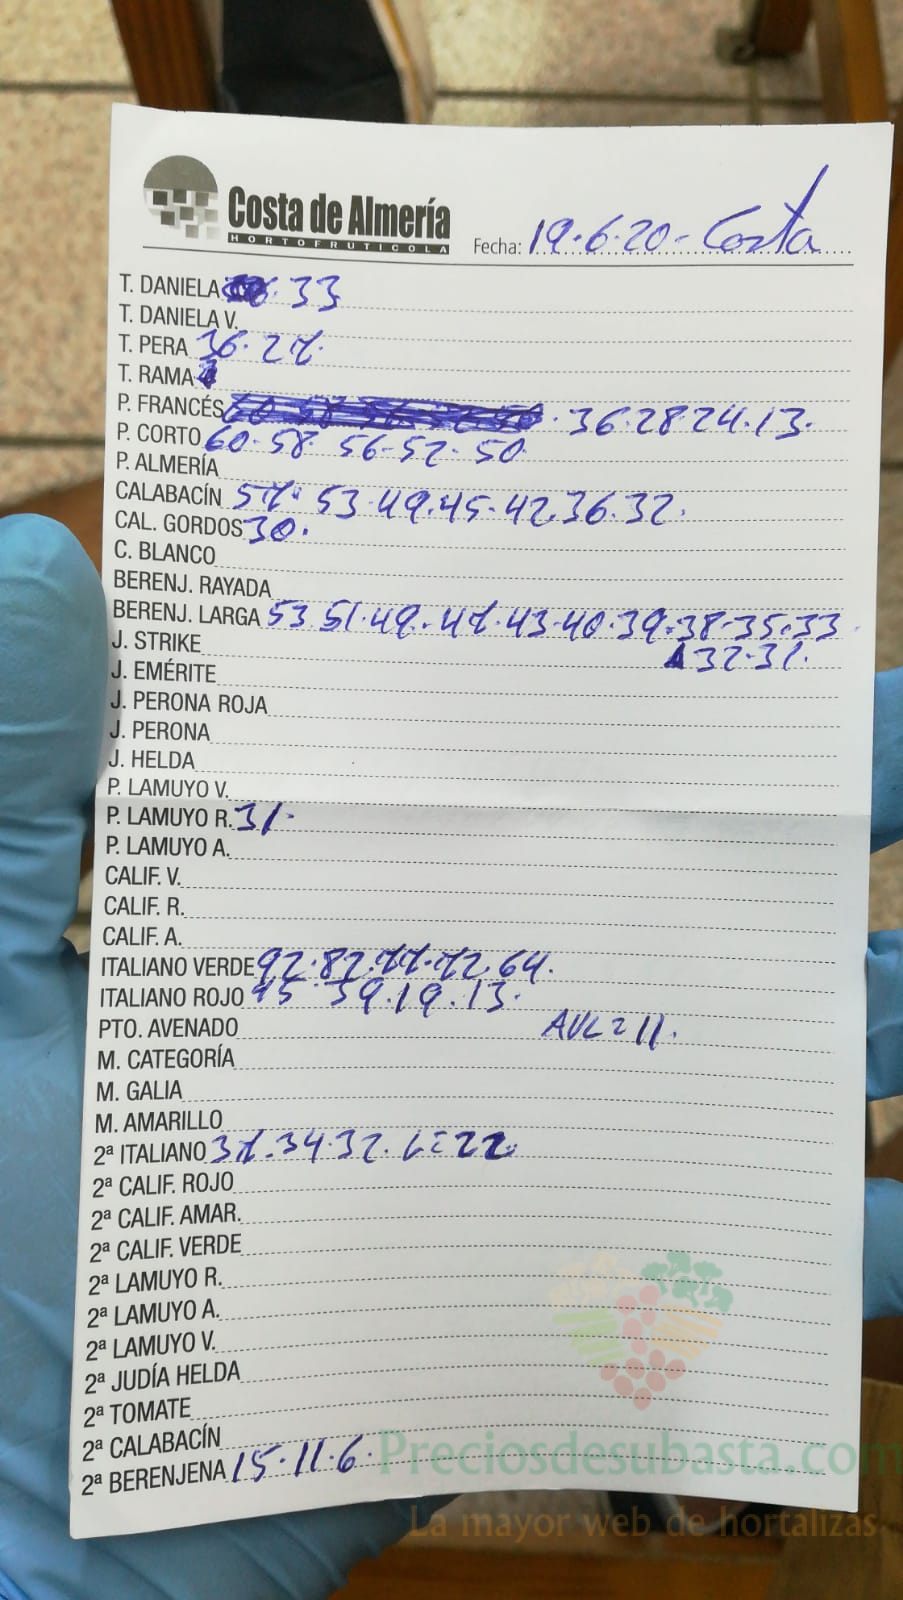 Costa de Almería
HORTOFRUTICOLA
Fecha: 19.6.20 - Costa
T. DANIELA 33
T. DANIELA V.
T. PERA 36. 27.
T. RAMA
P. FRANCÉS 36.28 24.13.
P. CORTO 60. 58 56-52. 50
P. ALMERÍA
CALABACÍN 57. 53.49.45-42.36.32.
CAL. GORDOS 30.
C. BLANCO
BERENJ. RAYADA
BERENJ. LARGA 53 51.49.47.43-40.39.38.35.33
J. STRIKE
32.31.
J. EMÉRITE
J. PERONA ROJA
J. PERONA
J. HELDA
P. LAMUYO V.
P. LAMUYO R. 31.
P. LAMUYO A.
CALIF. V.
CALIF. R.
CALIF. A.
ITALIANO VERDE 92.82.77.72.64.
ITALIANO ROJO 45 39.19.13.
PTO. AVENADO 11.
M. CATEGORÍA
M. GALIA
M. AMARILLO
2ª ITALIANO 37.34-32. 22
2ª CALIF. ROJO
2ª CALIF. AMAR.
2ª CALIF. VERDE
2ª LAMUYO R.
2ª LAMUYO A.
2ª LAMUYO V.
2ª JUDÍA HELDA
2ª TOMATE
2ª CALABACÍN
2ª BERENJENA 15.11.6.
Preciosdesubasta.com
La mayor web de hortalizas